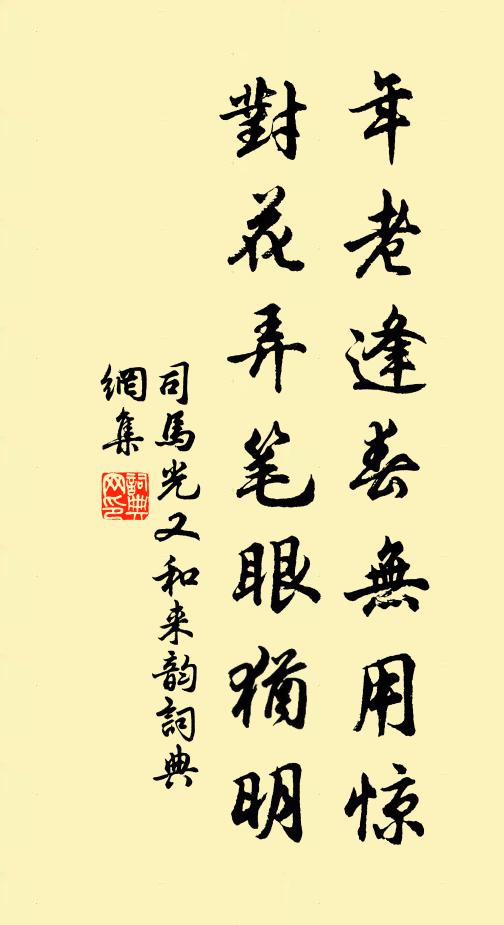 年老逢春無用惊
對花弄笔眼猶明
司馬光又和来韵詞典
網集
詞典
网印